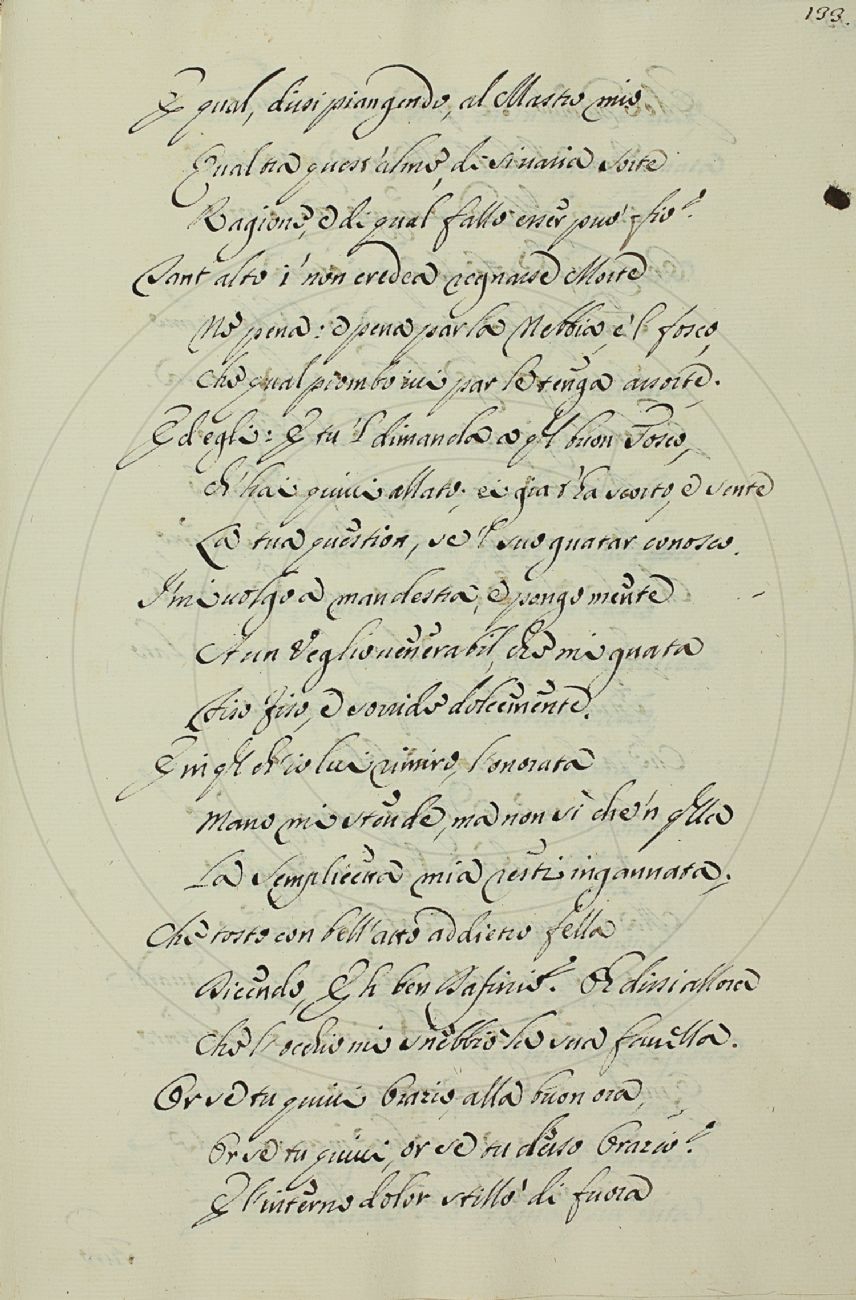 133.
E qual, dissi piangendo, al Mastro mio
Qual tra quest'alme, di si varia sorte
Ragione, e di qual fallo esser può 'l fio?
Tant' alto i' non credea regnasse Morte
Ne pena: e pena par la Nebbia, e 'l fosco,
Che qual piombo ivi par le tenga assorte.
Ed egli: E tu 'l dimanda a ql buon Tosco,
Ch'hai quivi allato; ei già t'ha scorto, e sente
La tua question, se 'l suo guatar conosco.
I' mi volgo a man destra, e pongo mente
A un Veglio venerabil, che mi guata
Fiso fiso, e sorride dolcemente.
E in ql ch'io lui rimiro, l'onorata
Mano mi stende, ma non sì che 'n qlla
La semplicetta mia resti ingannata;
Che tosto con bell'atto addietro fella
Dicendo, Eh ben Dafinio? Oh dissi allora
Che l'occhio mi snebbiò la sua favella.
Or se tu quivi Orazio, alla buon ora,
Or se tu quivi, or se tu desso Orazio?
E l'interno dolor stillò di fuora